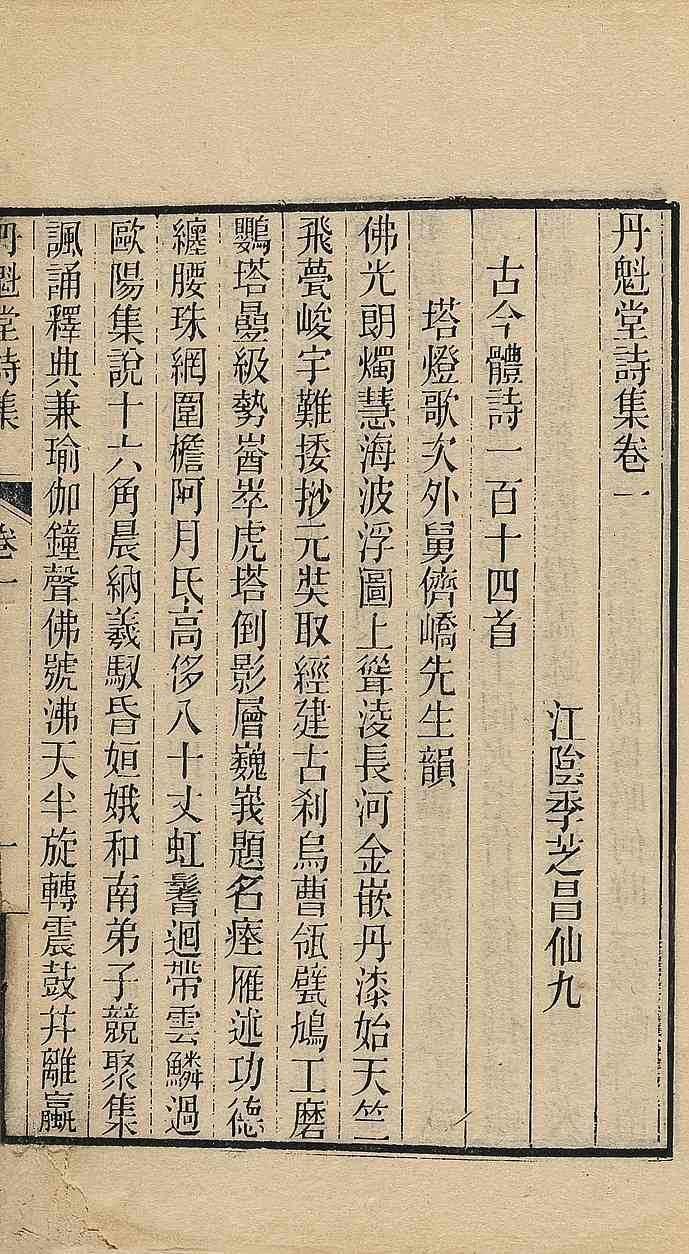 丹魁堂詩集卷一
江陰季芝昌仙九
古今體詩一百十四首
塔燈歌次外舅儕嶠先生韻
佛光朗燭慧海波浮圖上聳淩長河金嵌丹漆始天竺
飛甍峻宇難捼挱元奘取經建古刹烏曹瓴甓鳩工磨
鸚塔疊級勢崷崒虎塔倒影層巍峩題名瘞雁述功德
纏腰珠網圍檐阿月氏高侈八十丈虹鬐迴帶雲鱗過
歐陽集說十六角晨納羲馭昏姮娥和南弟子競聚集
諷誦釋典兼瑜伽鐘聲佛號沸天半旋轉震鼓幷離
丹魁堂詩集
卷一
一